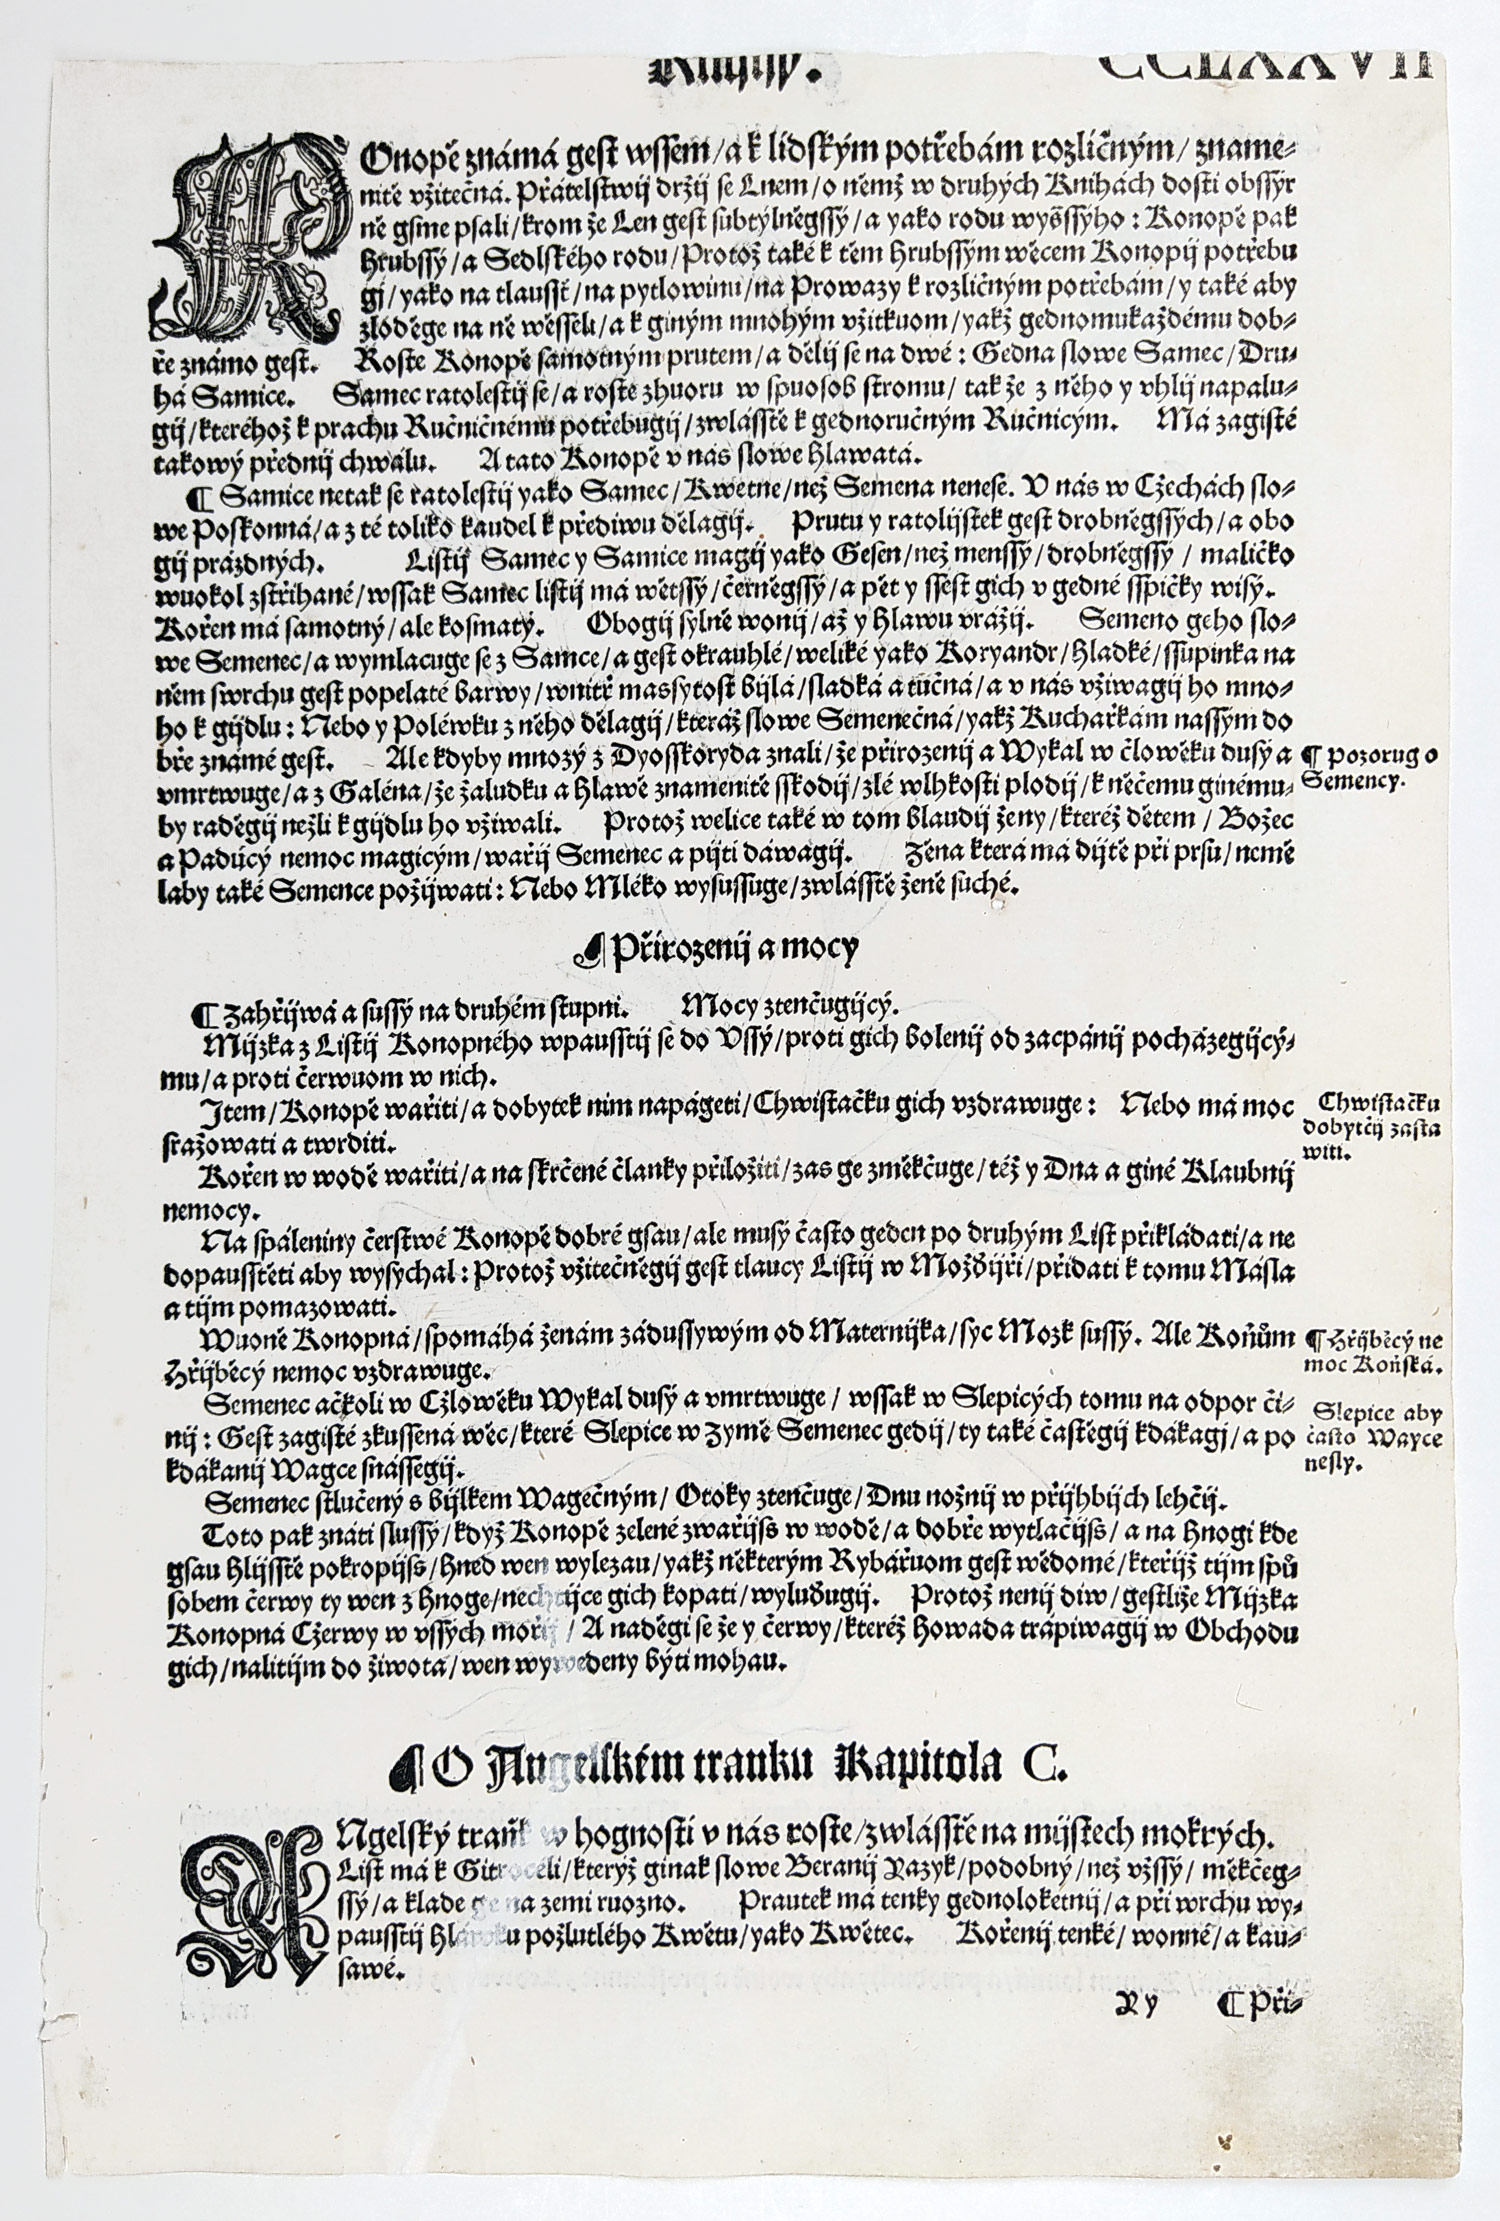 Knihy.
CCLXXVII
KOnopě známá gest wssem/a k lidským potřebám rozličným/ zname-
nitě vžitečná. Přátelstwij držij se Lnem/o němž w druhých Knihách dosti obssyr
ně gsme psali/krom že Len gest subtýlněgssý/a yako rodu wyšssýho: Konopě pak
hrubssý/a Sedlského rodu/Protož také k těm hrubssým wěcem Konopij potřebu
gj/yako na tlausst/na pytlowinu/na Prowazy k rozličným potřebám/y také aby
zloděge na ně wěsseli/a k giným mnohým vžitkuom/yakž gednomukaždému dob-
ře známo gest. Roste Konopě samotným prutem/a dělij se na dwé: Gedna slowe Samec/Dru-
há Samice. Samec ratolestij se/a roste zhuoru w spuosob stromu/ tak že z něho y vhlij napalu-
gij/kteréhož k prachu Ručničnému potřebugij/zwlásstě k gednoručným Ručnicým. Má zagisté
takowý přednij chwálu. A tato Konopě v nás slowe Hlawatá.
¶ Samice netak se ratolestij yako Samec/Kwetne/než Semena nenese. V nás w Cžechách slo-
we Poskonná/a z té toliko kaudel k předivu dělagij. Prutu y ratolijstek gest drobněgssých/a obo
gij prázdných. Listij Samec y Samice magij yako Gesen/než menssý/drobněgssý / maličko
wuokol zstřihané/wssak Samec listij má wětssý/černěgssý/a pět y ssest gich v gedné sspičky wisý.
Kořen má samotný/ale kosmatý. Obogij sylně wonij/až y Hlawu vrážij. Semeno geho slo-
we Semenec/a wymlacuge se z Samce/a gest okrauhlé/weliké yako Koryandr/hladké/ssupinka na
něm swrchu gest popelaté barwy/wnitř massytost bijlá/sladká a tučná/a v nás vžiwagij ho mno-
ho k gijdlu: Nebo y Poléwku z něho dělagij/kteráž slowe Semenečná/yakž Kuchařkám nassým do
bře známé gest. Ale kdyby mnozý z Dyosskoryda znali/že přirozenij a Wykal w člowěku dusý a
vmrtwuge/a z Galéna/že žaludku a hlawě znamenitě sskodij/zlé wlhkosti plodij/k něčemu ginému-
by raděgij nežli k gijdlu ho vžiwali. Protož welice také w tom blaudij ženy/kteréž dětem / Božec
a Padúcý nemoc magicým/wařij Semenec a pijti dáwagij. Žena která má dijtě při prsu/nemě
laby také Semence požijwati: Nebo Mléko wysussuge/zwlásstě ženě suché.
¶ Pozorug o
Semency.
¶ Přirozenij a mocy
¶ Zahřijwá a sussý na druhém stupni. Mocy ztenčugijcý.
Mijzka z Listij Konopného wpausstij se do Vssý/proti gich bolenij od zacpánij pocházegijcý-
mu/a proti červuom w nich.
Jtem/Konopě wařiti/a dobytek nim napágeti/Chwistačku gich vzdrawuge: Nebo má moc
sražowati a twrditi.
Chwistačku
dobytčij zasta
witi.
Kořen w wodě wařiti/a na skrčené članky přiložiti/zas ge změkčuge/též y Dna a giné Klaubnij
nemocy.
Na spáleniny čerstwé Konopě dobré gsau/ale musý často geden po druhým List přikládati/a ne
dopausstěti aby wysychal: Protož vžitečněgij gest tlaucy Listij w Moždijři/přidati k tomu Másla
a tijm pomazowati.
Wuoně Konopná/spomáhá ženám zádussywým od Maternijka/syc Mozk sussý. Ale Koňům
Hřijběcý nemoc vzdrawuge.
¶ Hřijběcý ne
moc Koňská.
Semenec ačkoli w Cžlowěku Wykal dusý a vmrtwuge/ wssak w Slepicých tomu na odpor či-
nij: Gest zagisté zkussená wěc/které Slepice w Zymě Semenec gedij/ty také častěgij kdákagj/a po
kdákanij Wagce snássegij.
Slepice aby
často Wayce
nesly.
Semenec stlučený s bijlkem Wagečným/ Otoky ztenčuge/Dnu nožnij w přijhbijch lehčij.
Toto pak znáti slussý/když Konopě zelené zwařijss w wodě/a dobře wytlačijss/a na Hnogi kde
gsau hlijsstě pokropijss/hned wen wylezau/yakž některým Rybářuom gest wědomé/kteřijž tijm spů
sobem červy ty wen z hnoge/nechtijce gich kopati/wyluďugij. Protož nenij diw/gestliže Mijzka
Konopná Cžerwy w vssých mořij / A naděgi se že y čerwy/kteréž howada trápiwagij w Obchodu
gich/nalitijm do žiwota/wen wywedeny býti mohau.
¶ O Angelském tranku Kapitola C.
ANgelský trank w hognosti v nás roste/zwlásstě na mijstech mokrých.
List má k Gitroceli/kterýž ginak slowe Beranij Yazyk/podobný/než vžssý/ měkčeg-
ssý/a klade ge na zemi ruozno. Prautek má tenký gednoloketnij/a při wrchu wy-
pausstij hlawku požlutlého Kwětu/yako Kwětec. Kořenij tenké/ wonné/a kau-
sawé.
Yy ¶ Při-